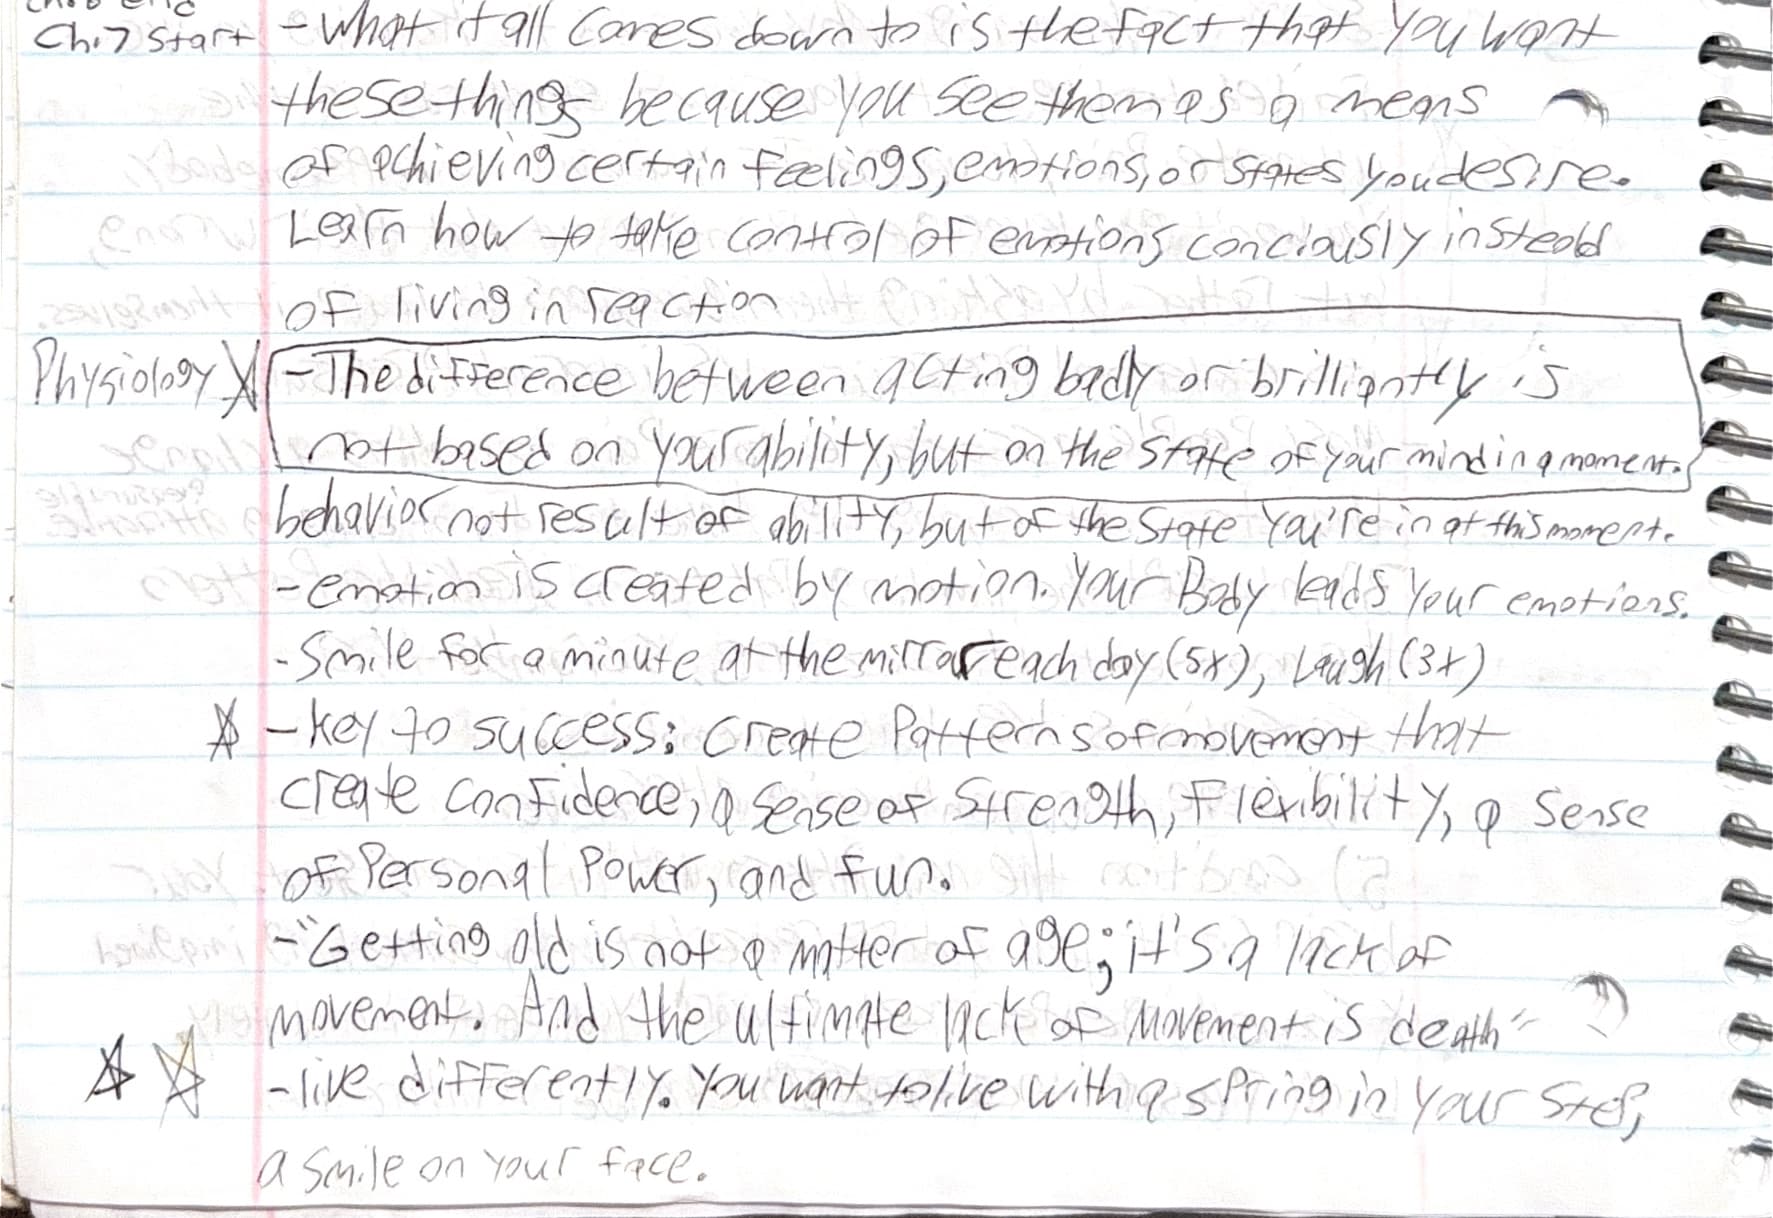 Ch.7 Start - What it all comes down to is the fact that you want
these things because you see them as a means
of achieving certain feelings, emotions, or states you desire.
Learn how to take control of emotions conciously instead
of living in reaction
Physiology - The difference between acting badly or brilliantly is
not based on your ability, but on the state of your mind in a moment.
behavior not result of ability, but of the state you're in at this moment.
- emotion is created by motion. Your Body leads your emotions.
- Smile for a minute at the mirror each day (5x), Laugh (3x)
- key to success: create Patterns of movement that
create confidence, a sense of strength, flexibility, a sense
of Personal Power, and fun.
- "Getting old is not a matter of age; it's a lack of
movement. And the ultimate lack of movement is death"
- live differently. You want to live with a spring in your step,
a smile on your face.